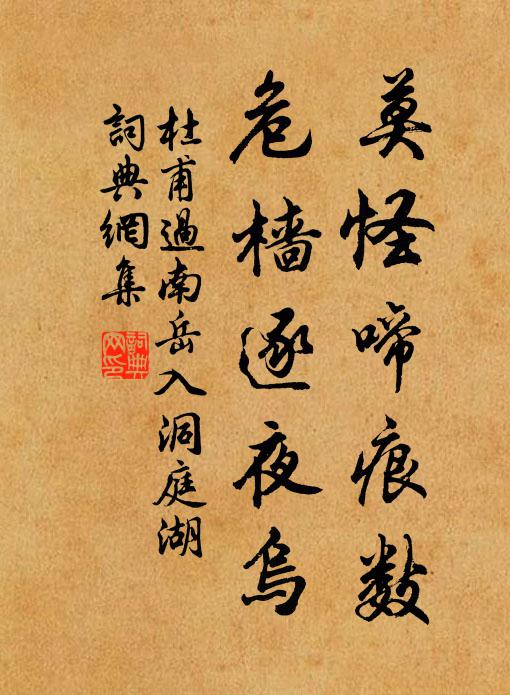 莫怪啼痕数
危樯逐夜烏
杜甫過南岳入洞庭湖
詞典網集
詞典网印